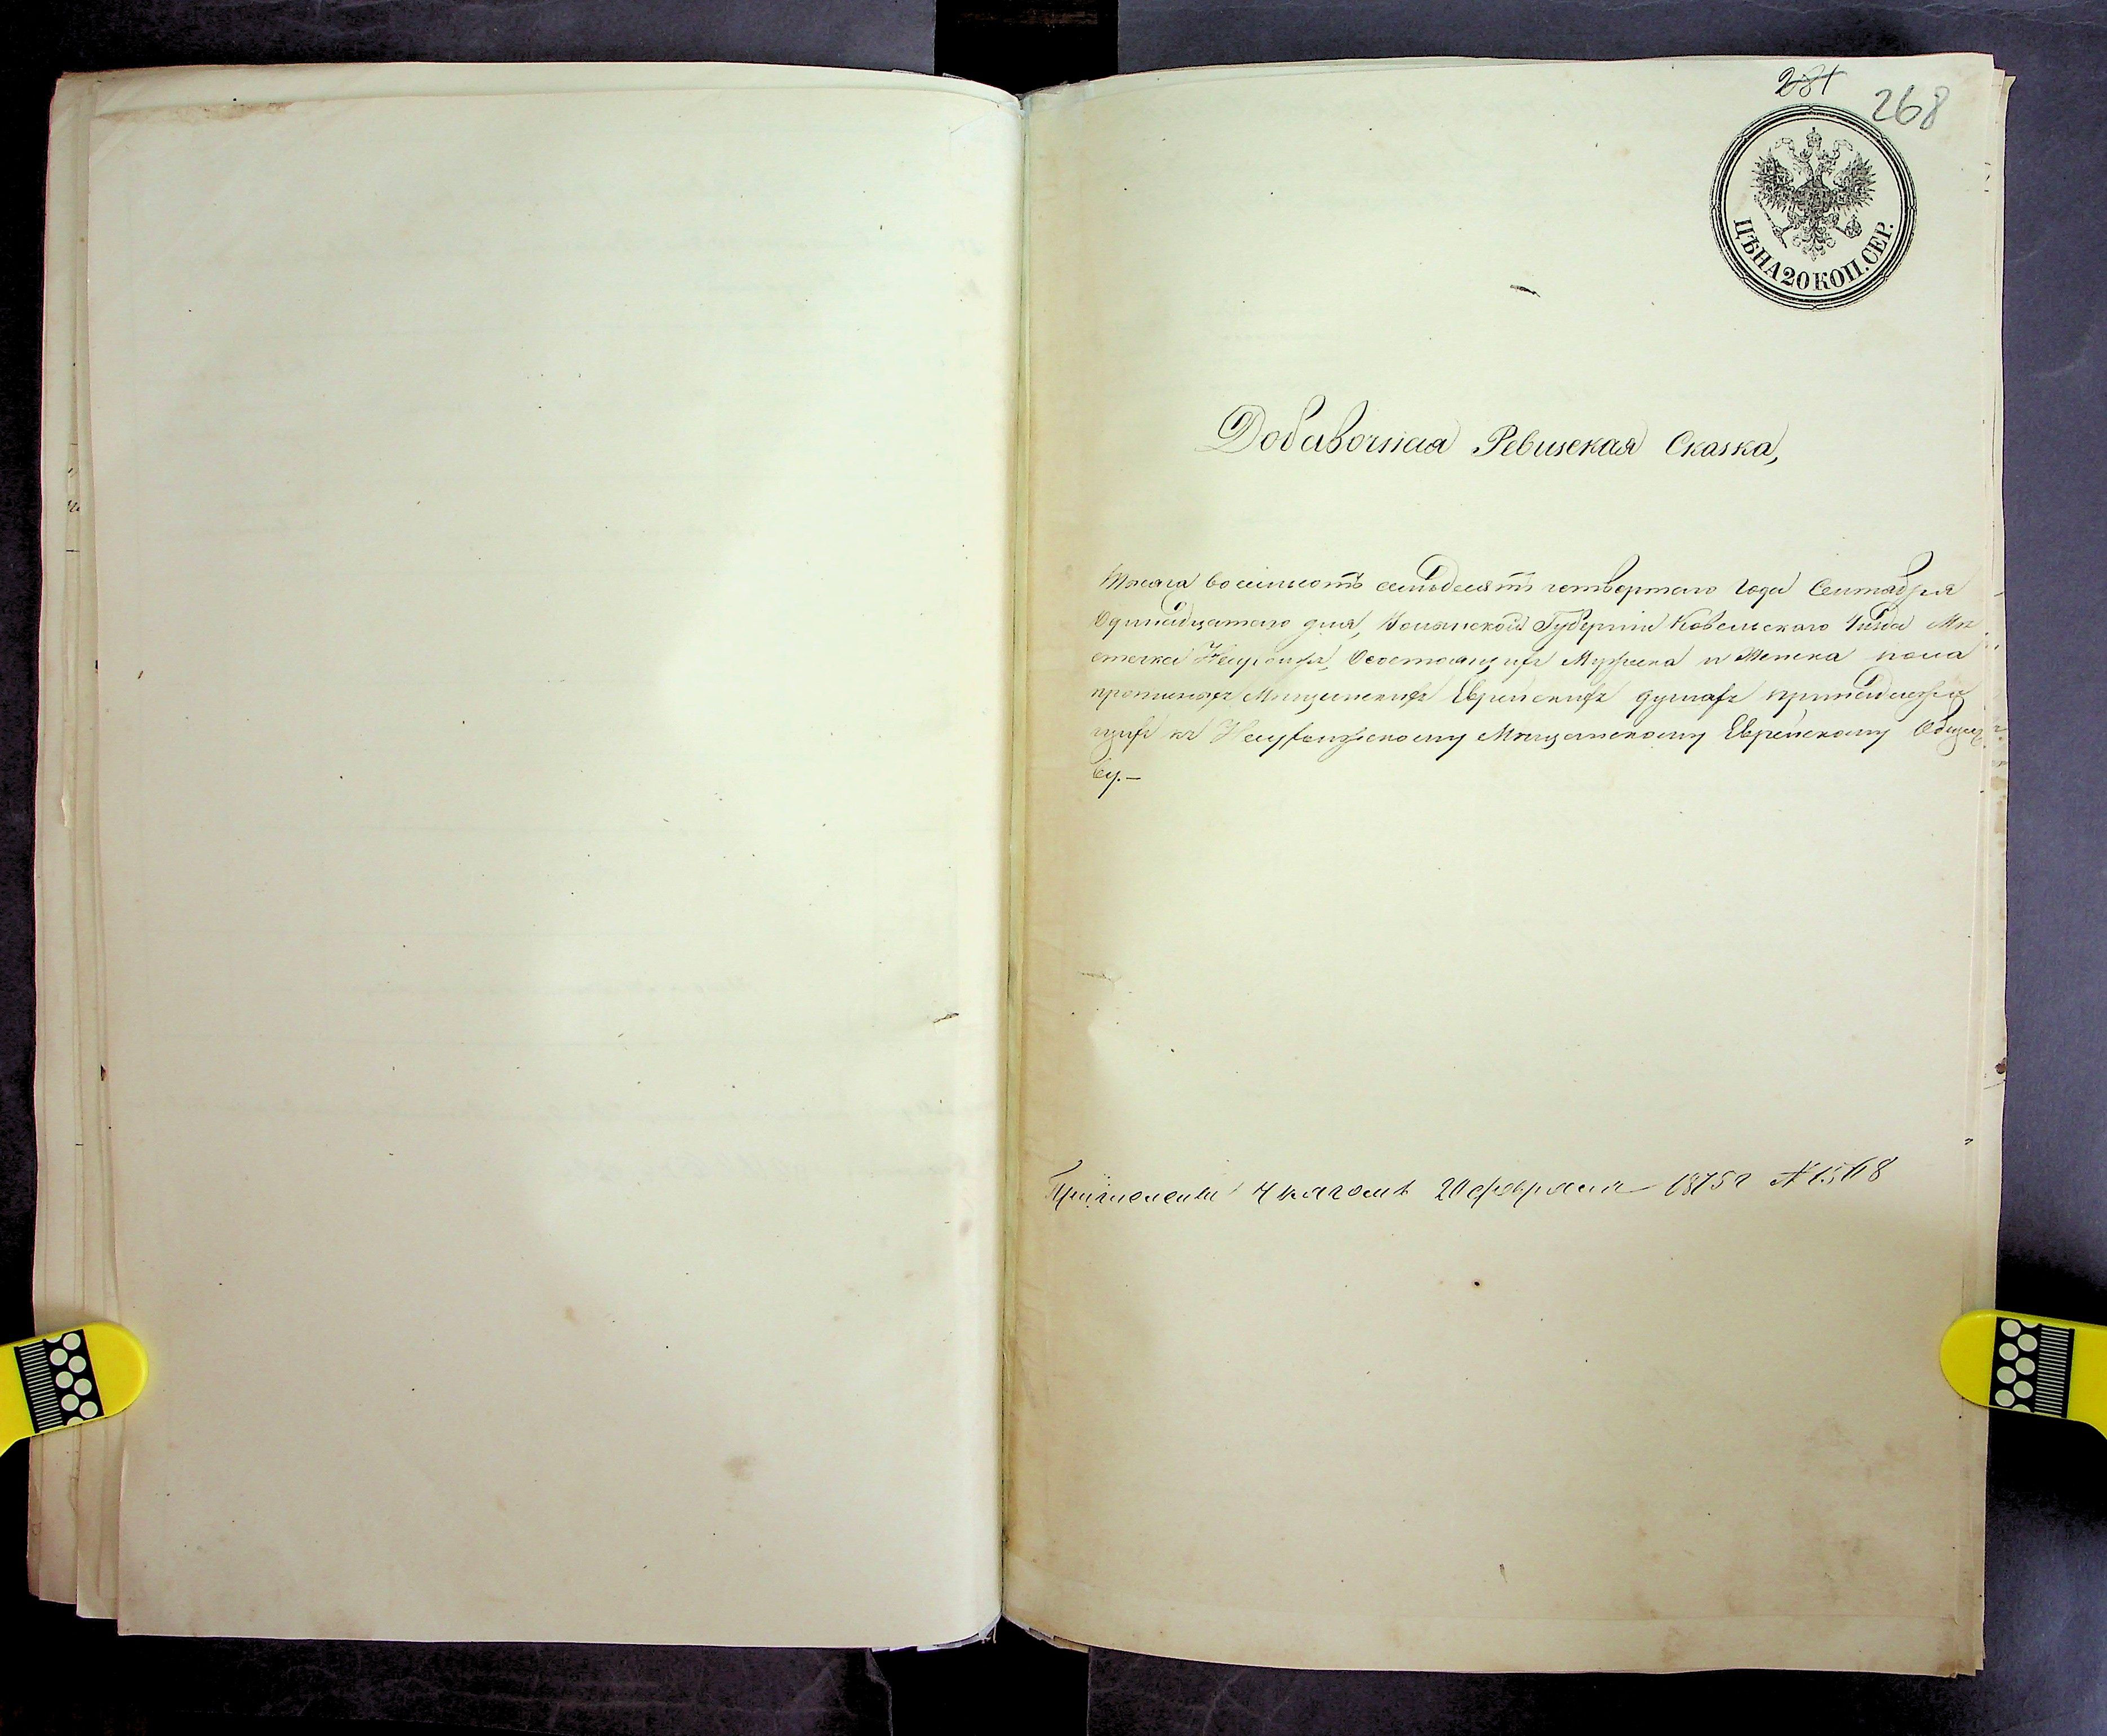 281
268
ЦѢНА 20 КОП. СЕР.
Добавочная Ревизская Сказка,
Тысяча восемьсотъ семьдесятъ четвертаго года Сентября
Одинадцатаго дня, Волынской Губерніи Ковельскаго Уѣзда Мѣ
стечка О состоящихъ Мужеска и Женска пола
Мѣщанскихъ Еврейскихъ душахъ принадлежа
щихъ къ Мѣщанскому Еврейскому Общест
ву.—
20 февраля 1875 г №